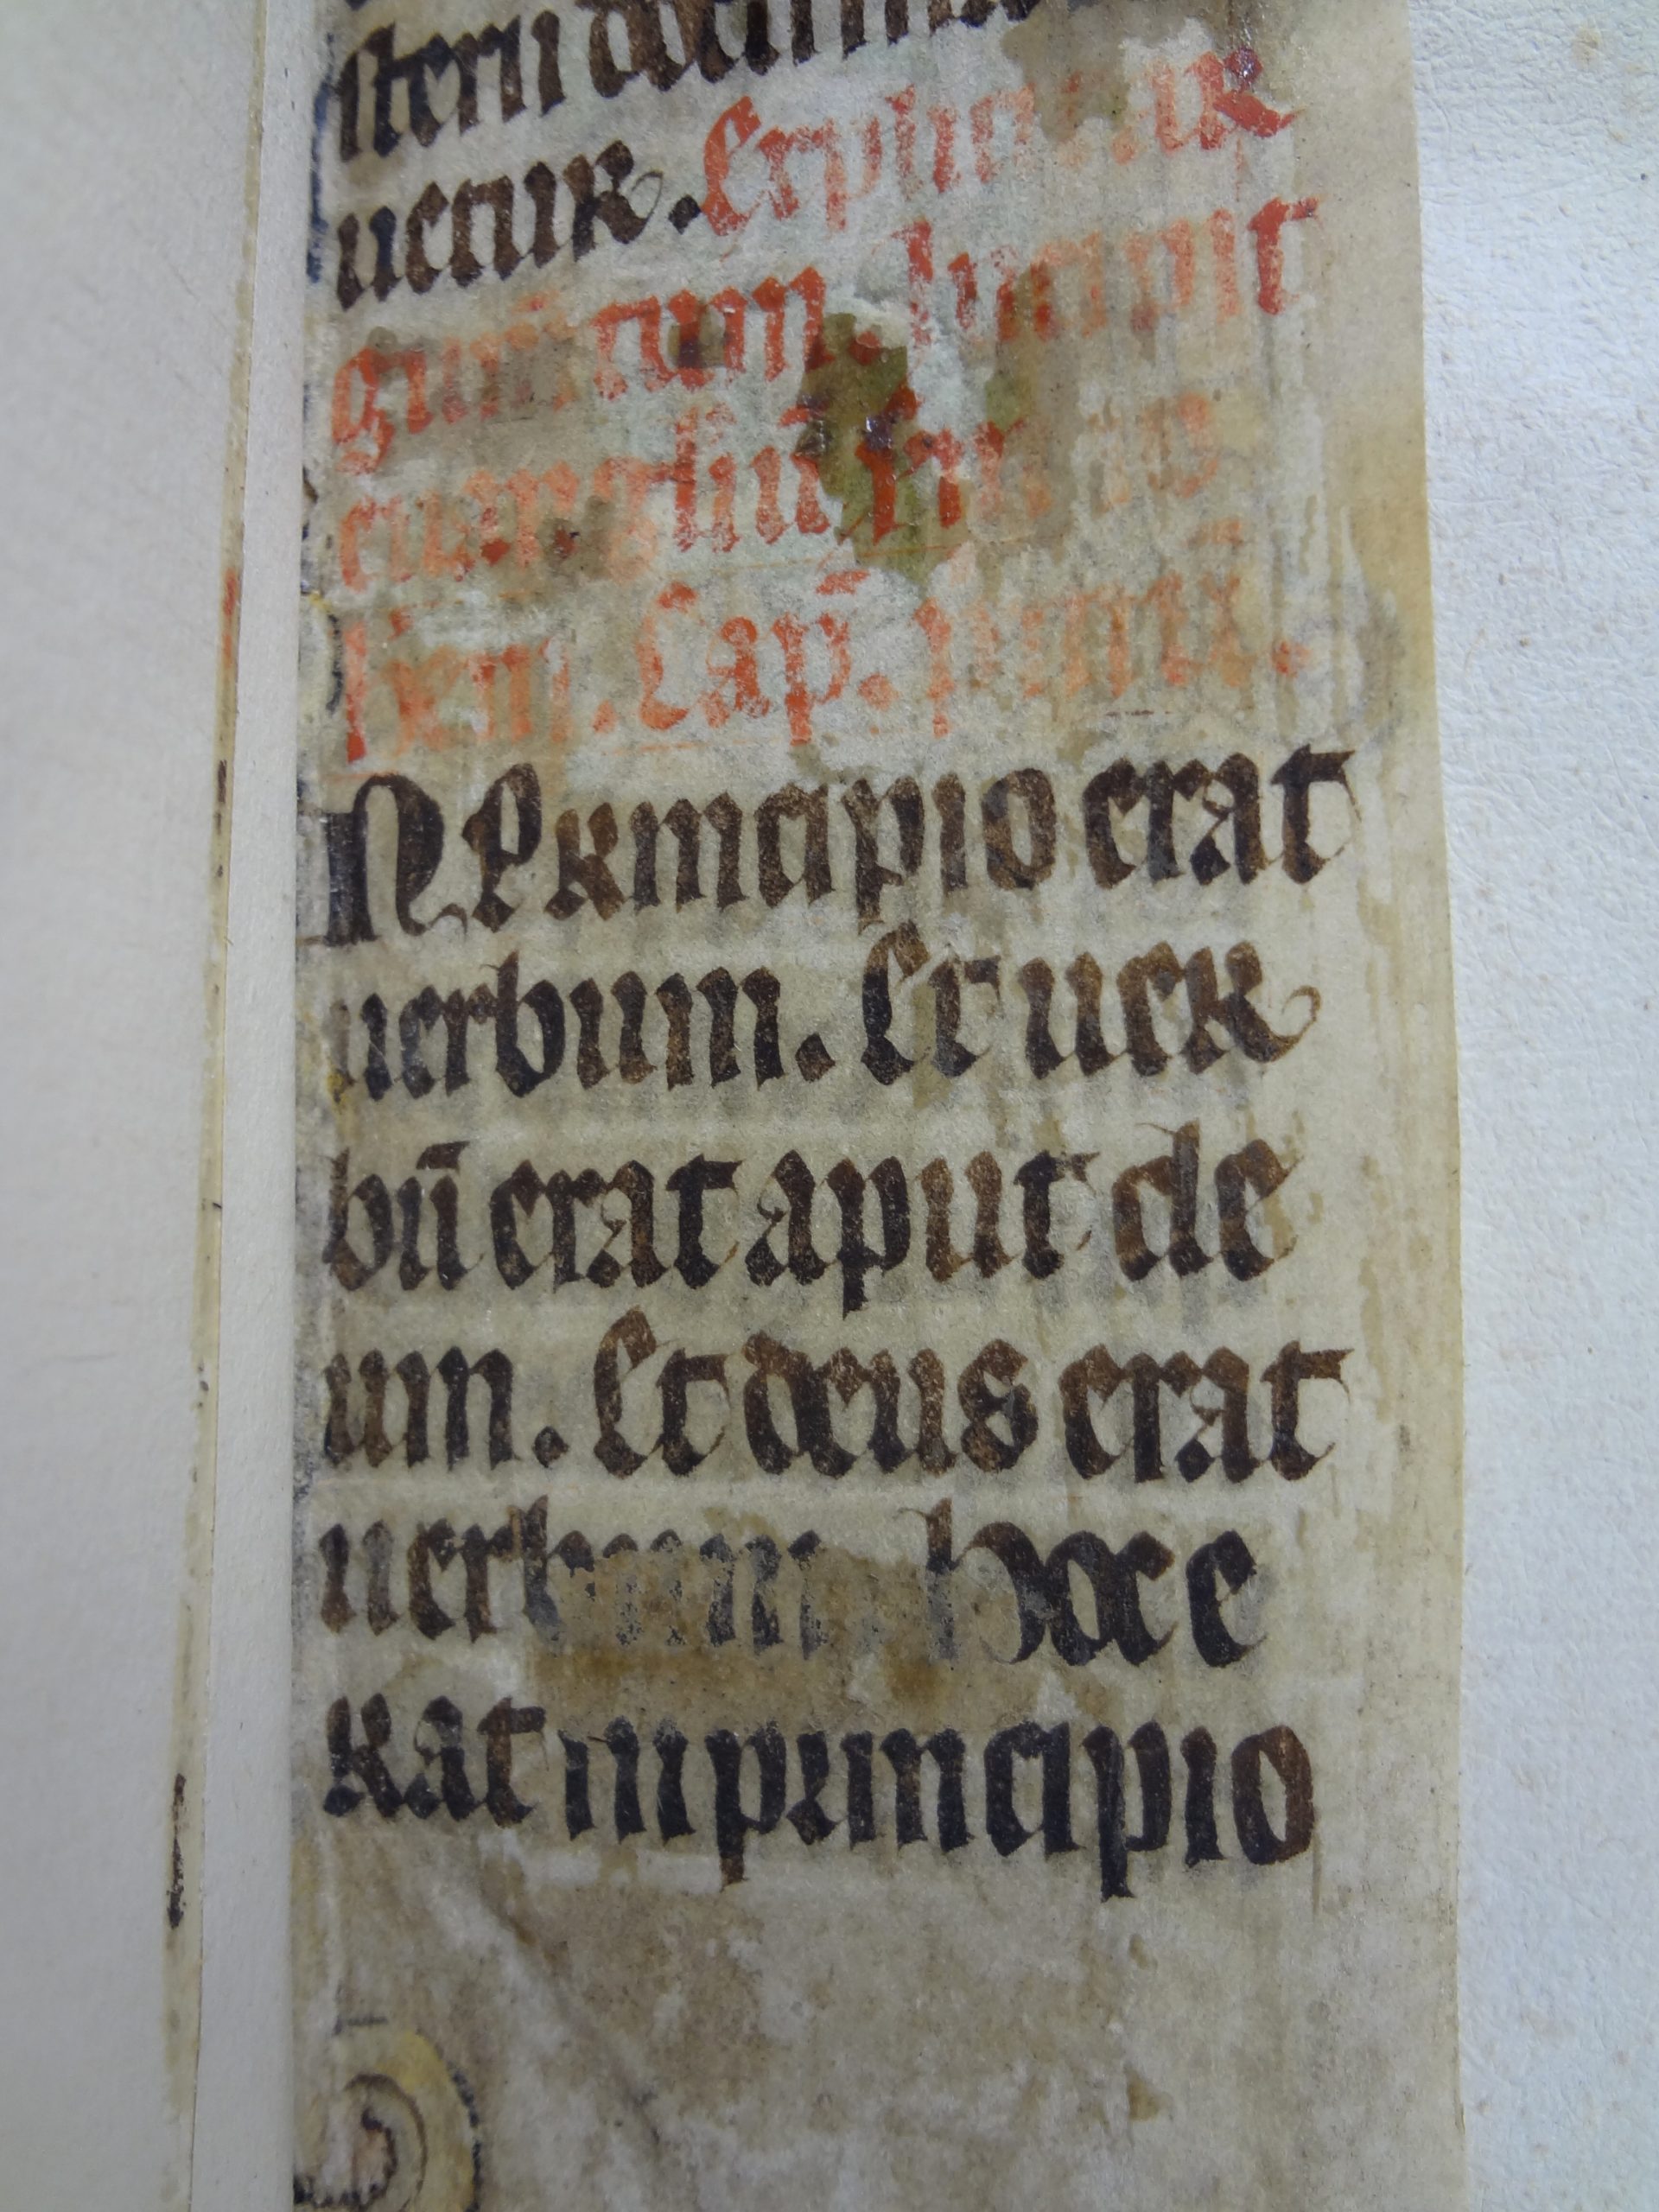 uetur. Explicit ar
gumentum. Incipit
euangliū
Cap̄. primū.
N PRincipio erat
uerbum. Et ueR
bū erat aput de
um. Et deus erat
uerbum. hoc e
Rat in principio